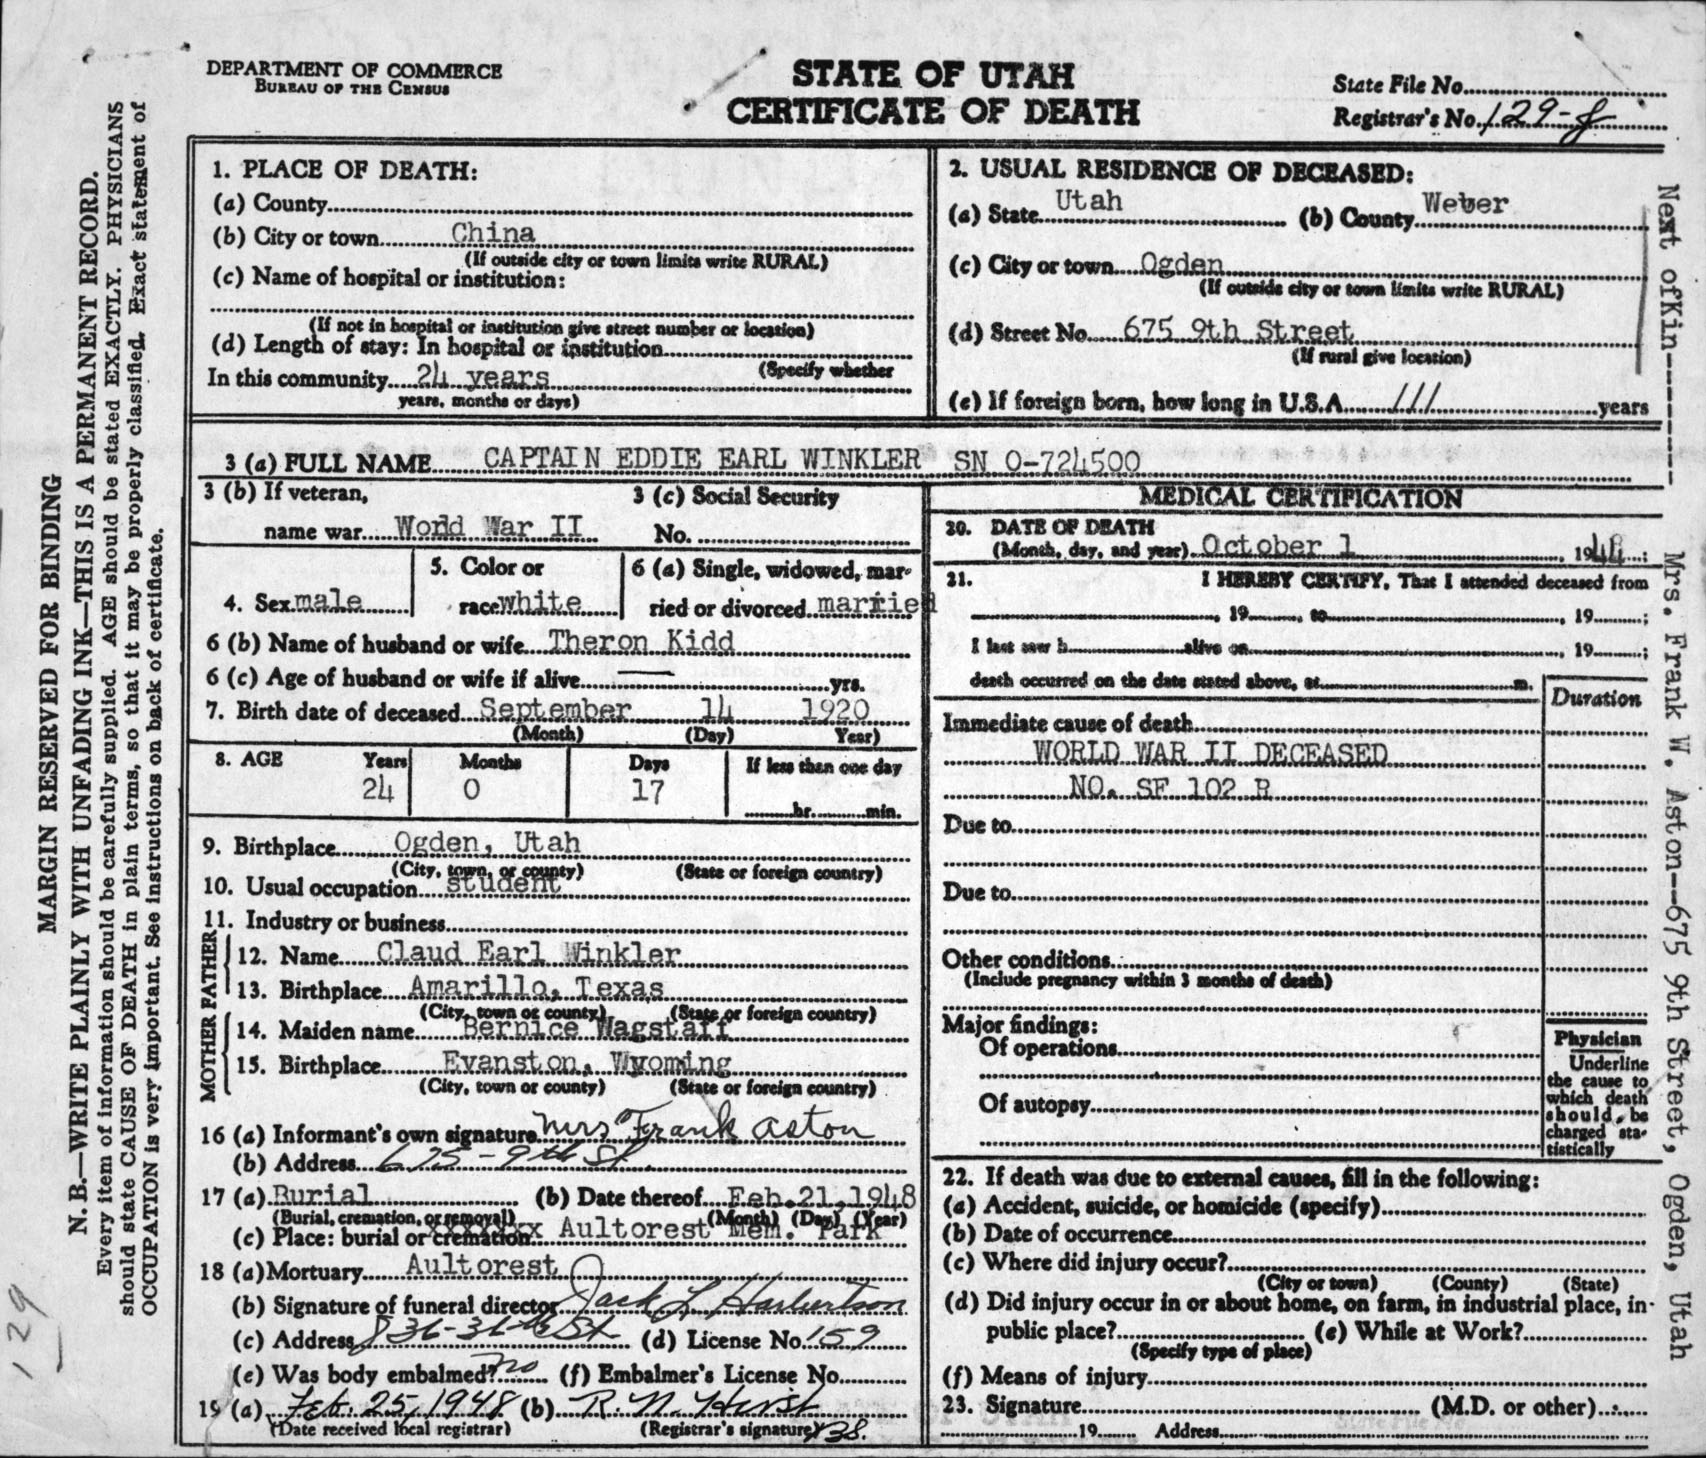 DEPARTMENT OF COMMERCE
BUREAU OF THE CENSUS
STATE OF UTAH
CERTIFICATE OF DEATH
State File No.
Registrar's No. 129-f
1. PLACE OF DEATH:
(a) County
(b) City or town China
(If outside city or town limits write RURAL)
(c) Name of hospital or institution:
(If not in hospital or institution give street number or location)
(d) Length of stay: In hospital or institution
(Specify whether
In this community 24 years
years, months or days)
2. USUAL RESIDENCE OF DECEASED:
(a) State Utah (b) County Weber
(c) City or town Ogden
(If outside city or town limits write RURAL)
(d) Street No. 675 9th Street
(If rural give location)
(e) If foreign born, how long in U.S.A. /// years
3 (a) FULL NAME CAPTAIN EDDIE EARL WINKLER SN O-724500
3 (b) If veteran,
name war World War II
3 (c) Social Security
No.
4. Sex male
5. Color or
race white
6 (a) Single, widowed, mar-
ried or divorced married
6 (b) Name of husband or wife Theron Kidd
6 (c) Age of husband or wife if alive — yrs.
7. Birth date of deceased September 14 1920
(Month) (Day) Year)
8. AGE Years Months Days If less than one day
24 0 17 hr. min.
9. Birthplace Ogden, Utah
(City, town, or county) (State or foreign country)
10. Usual occupation student
11. Industry or business
FATHER
12. Name Claud Earl Winkler
13. Birthplace Amarillo, Texas
(City, town or county) (State or foreign country)
MOTHER
14. Maiden name Bernice Wagstaff
15. Birthplace Evanston, Wyoming
(City, town or county) (State or foreign country)
16 (a) Informant's own signature Mrs Frank Aston
(b) Address 675-9th St.
17 (a) Burial (b) Date thereof Feb. 21, 1948
(Burial, cremation, or removal) (Month) (Day) (Year)
(c) Place: burial or cremation Aultorest Mem. Park
18 (a) Mortuary Aultorest
(b) Signature of funeral director Jack L. Harbertson
(c) Address 836-36th St (d) License No. 159
(e) Was body embalmed? no (f) Embalmer's License No.
19 (a) Feb. 25, 1948 (b) R. N. Hirst
(Date received local registrar) (Registrar's signature) 438.
MEDICAL CERTIFICATION
20. DATE OF DEATH
(Month, day, and year) October 1, 1944;
21. I HEREBY CERTIFY, That I attended deceased from
, 19 , to , 19 ;
I last saw h alive on , 19 ;
death occurred on the date stated above, at m.
Duration
Immediate cause of death
WORLD WAR II DECEASED
NO. SF 102 R
Due to
Due to
Other conditions
(Include pregnancy within 3 months of death)
Major findings:
Of operations
Of autopsy
Physician
Underline
the cause to
which death
should be
charged sta-
tistically
22. If death was due to external causes, fill in the following:
(a) Accident, suicide, or homicide (specify)
(b) Date of occurrence
(c) Where did injury occur?
(City or town) (County) (State)
(d) Did injury occur in or about home, on farm, in industrial place, in
public place? (e) While at Work?
(Specify type of place)
(f) Means of injury
23. Signature (M.D. or other)
19 Address
MARGIN RESERVED FOR BINDING
N. B.—WRITE PLAINLY WITH UNFADING INK—THIS IS A PERMANENT RECORD.
Every item of information should be carefully supplied. AGE should be stated EXACTLY. PHYSICIANS
should state CAUSE OF DEATH in plain terms, so that it may be properly classified. Exact statement of
OCCUPATION is very important. See instructions on back of certificate.
129
Next of Kin-------- Mrs. Frank W. Aston--675 9th Street, Ogden, Utah